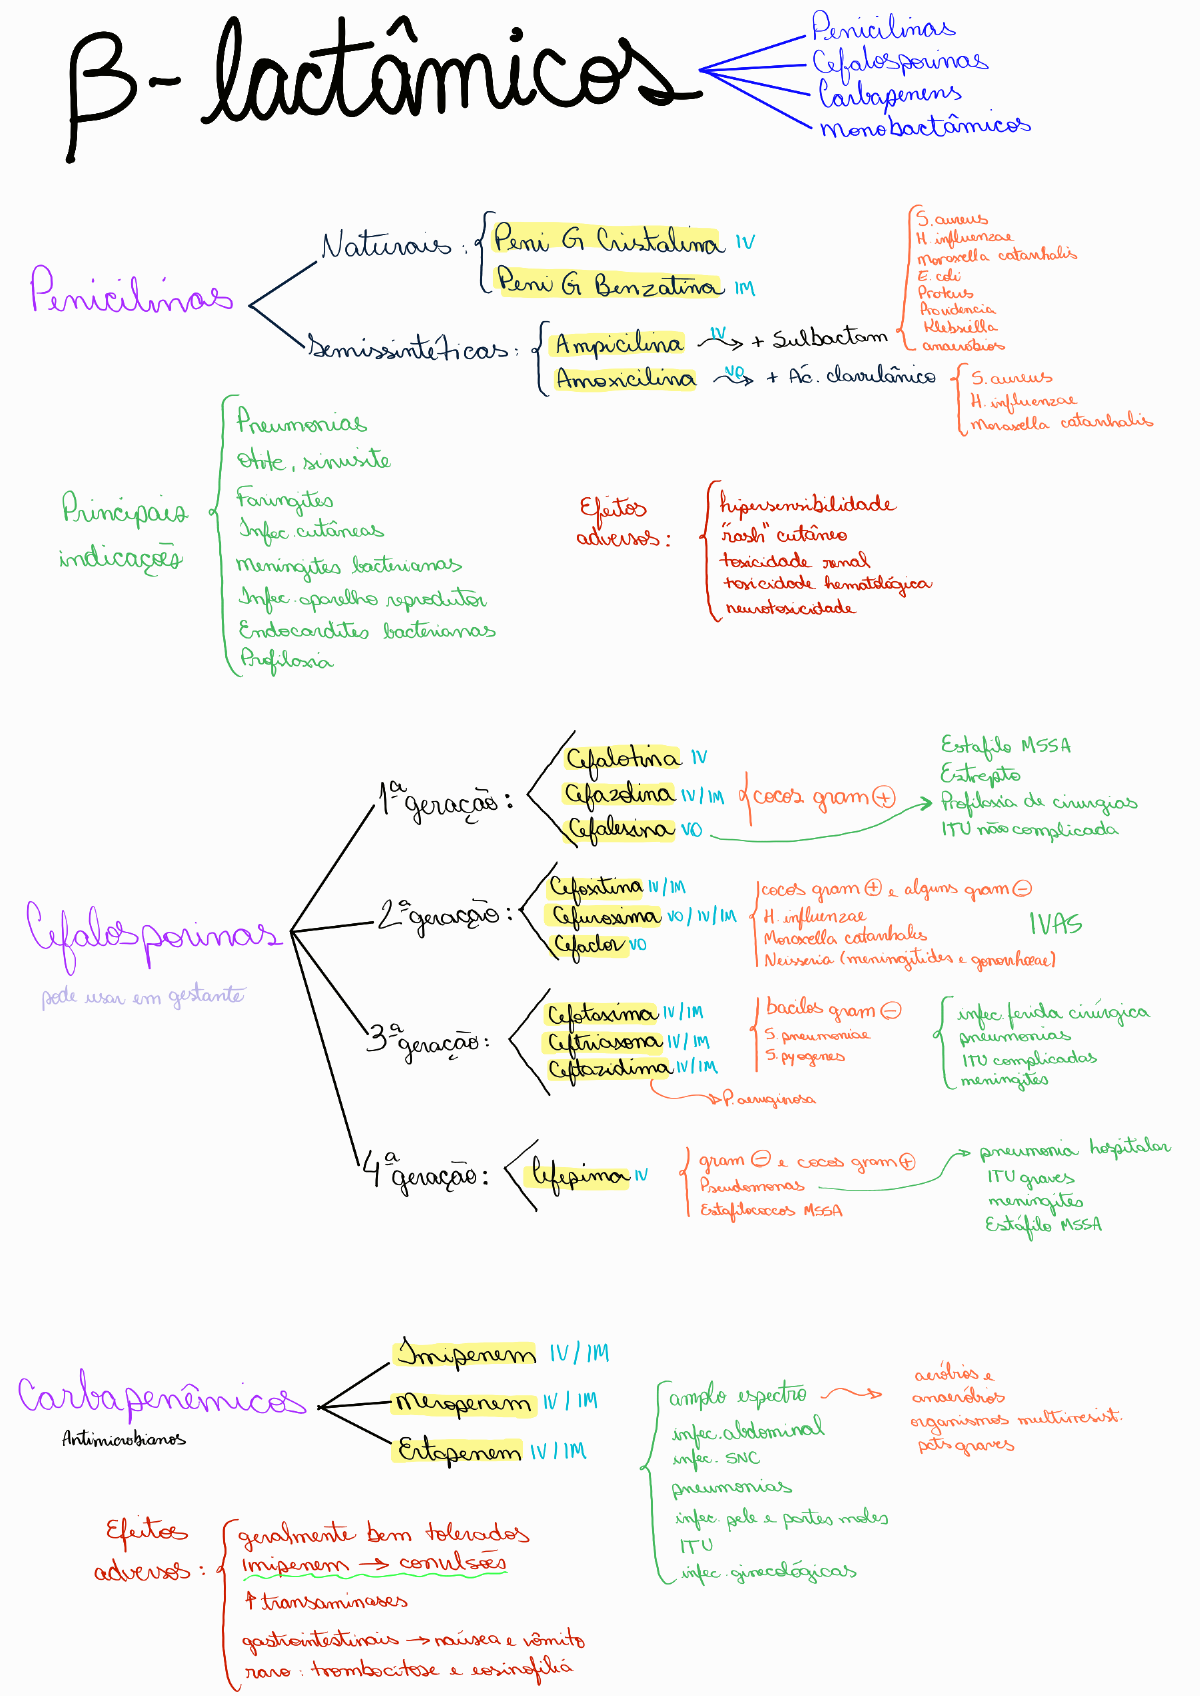 β-lactâmicos
Penicilinas
Cefalosporinas
Carbapenens
Monobactâmicos
Penicilinas
Naturais:
Peni G Cristalina IV
Peni G Benzatina IM
Semissintéticas:
Ampicilina IV + Sulbactam
Amoxicilina VO + Ác. clavulânico
S. aureus
H. influenzae
moraxella catarrhalis
E. coli
Proteus
Providencia
Klebsiella
anaeróbios
S. aureus
H. influenzae
Moraxella catarrhalis
Principais
indicações
Pneumonias
Otite, sinusite
Faringites
Infec. cutâneas
Meningites bacterianas
Infec. aparelho reprodutor
Endocardites bacterianas
Profilaxia
Efeitos
adversos:
hipersensibilidade
"rash" cutâneo
toxicidade renal
toxicidade hematológica
neurotoxicidade
Cefalosporinas
pode usar em gestante
1ª geração:
Cefalotina IV
Cefazolina IV/IM
Cefalexina VO
cocos gram +
Estafilo MSSA
Estrepto
Profilaxia de cirurgias
ITU não complicada
2ª geração:
Cefoxitina IV/IM
Cefuroxima VO/IV/IM
Cefaclor VO
cocos gram + e alguns gram -
H. influenzae
Moraxella catarrhalis
Neisseria (meningitides e gonorrhoeae)
IVAS
3ª geração:
Cefotaxima IV/IM
Ceftriaxona IV/IM
Ceftazidima IV/IM
P. aeruginosa
bacilos gram -
S. pneumoniae
S. pyogenes
infec. ferida cirúrgica
pneumonias
ITU complicadas
meningites
4ª geração:
Cefepima IV
gram - e cocos gram +
Pseudomonas
Estafilococcos MSSA
pneumonia hospitalar
ITU graves
meningites
Estáfilo MSSA
Carbapenêmicos
Antimicrobianos
Imipenem IV/IM
Meropenem IV/IM
Ertapenem IV/IM
amplo espectro
infec. abdominal
infec. SNC
pneumonias
infec. pele e partes moles
ITU
infec. ginecológicas
aeróbios e
anaeróbios
organismos multirresist.
pcts graves
Efeitos
adversos:
geralmente bem tolerados
imipenem → convulsões
↑ transaminases
gastrointestinais → náusea e vômito
raro: trombocitose e eosinofilia